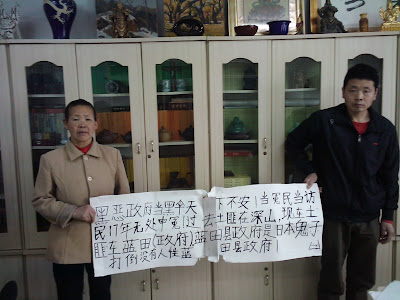 黑恶政府当黑伞天下不安！当冤民当访
民17年无处申冤！过去土匪在深山,现在土
匪在蓝田(政府)蓝田县政府是日本鬼子
打倒没有人性蓝田县政府！